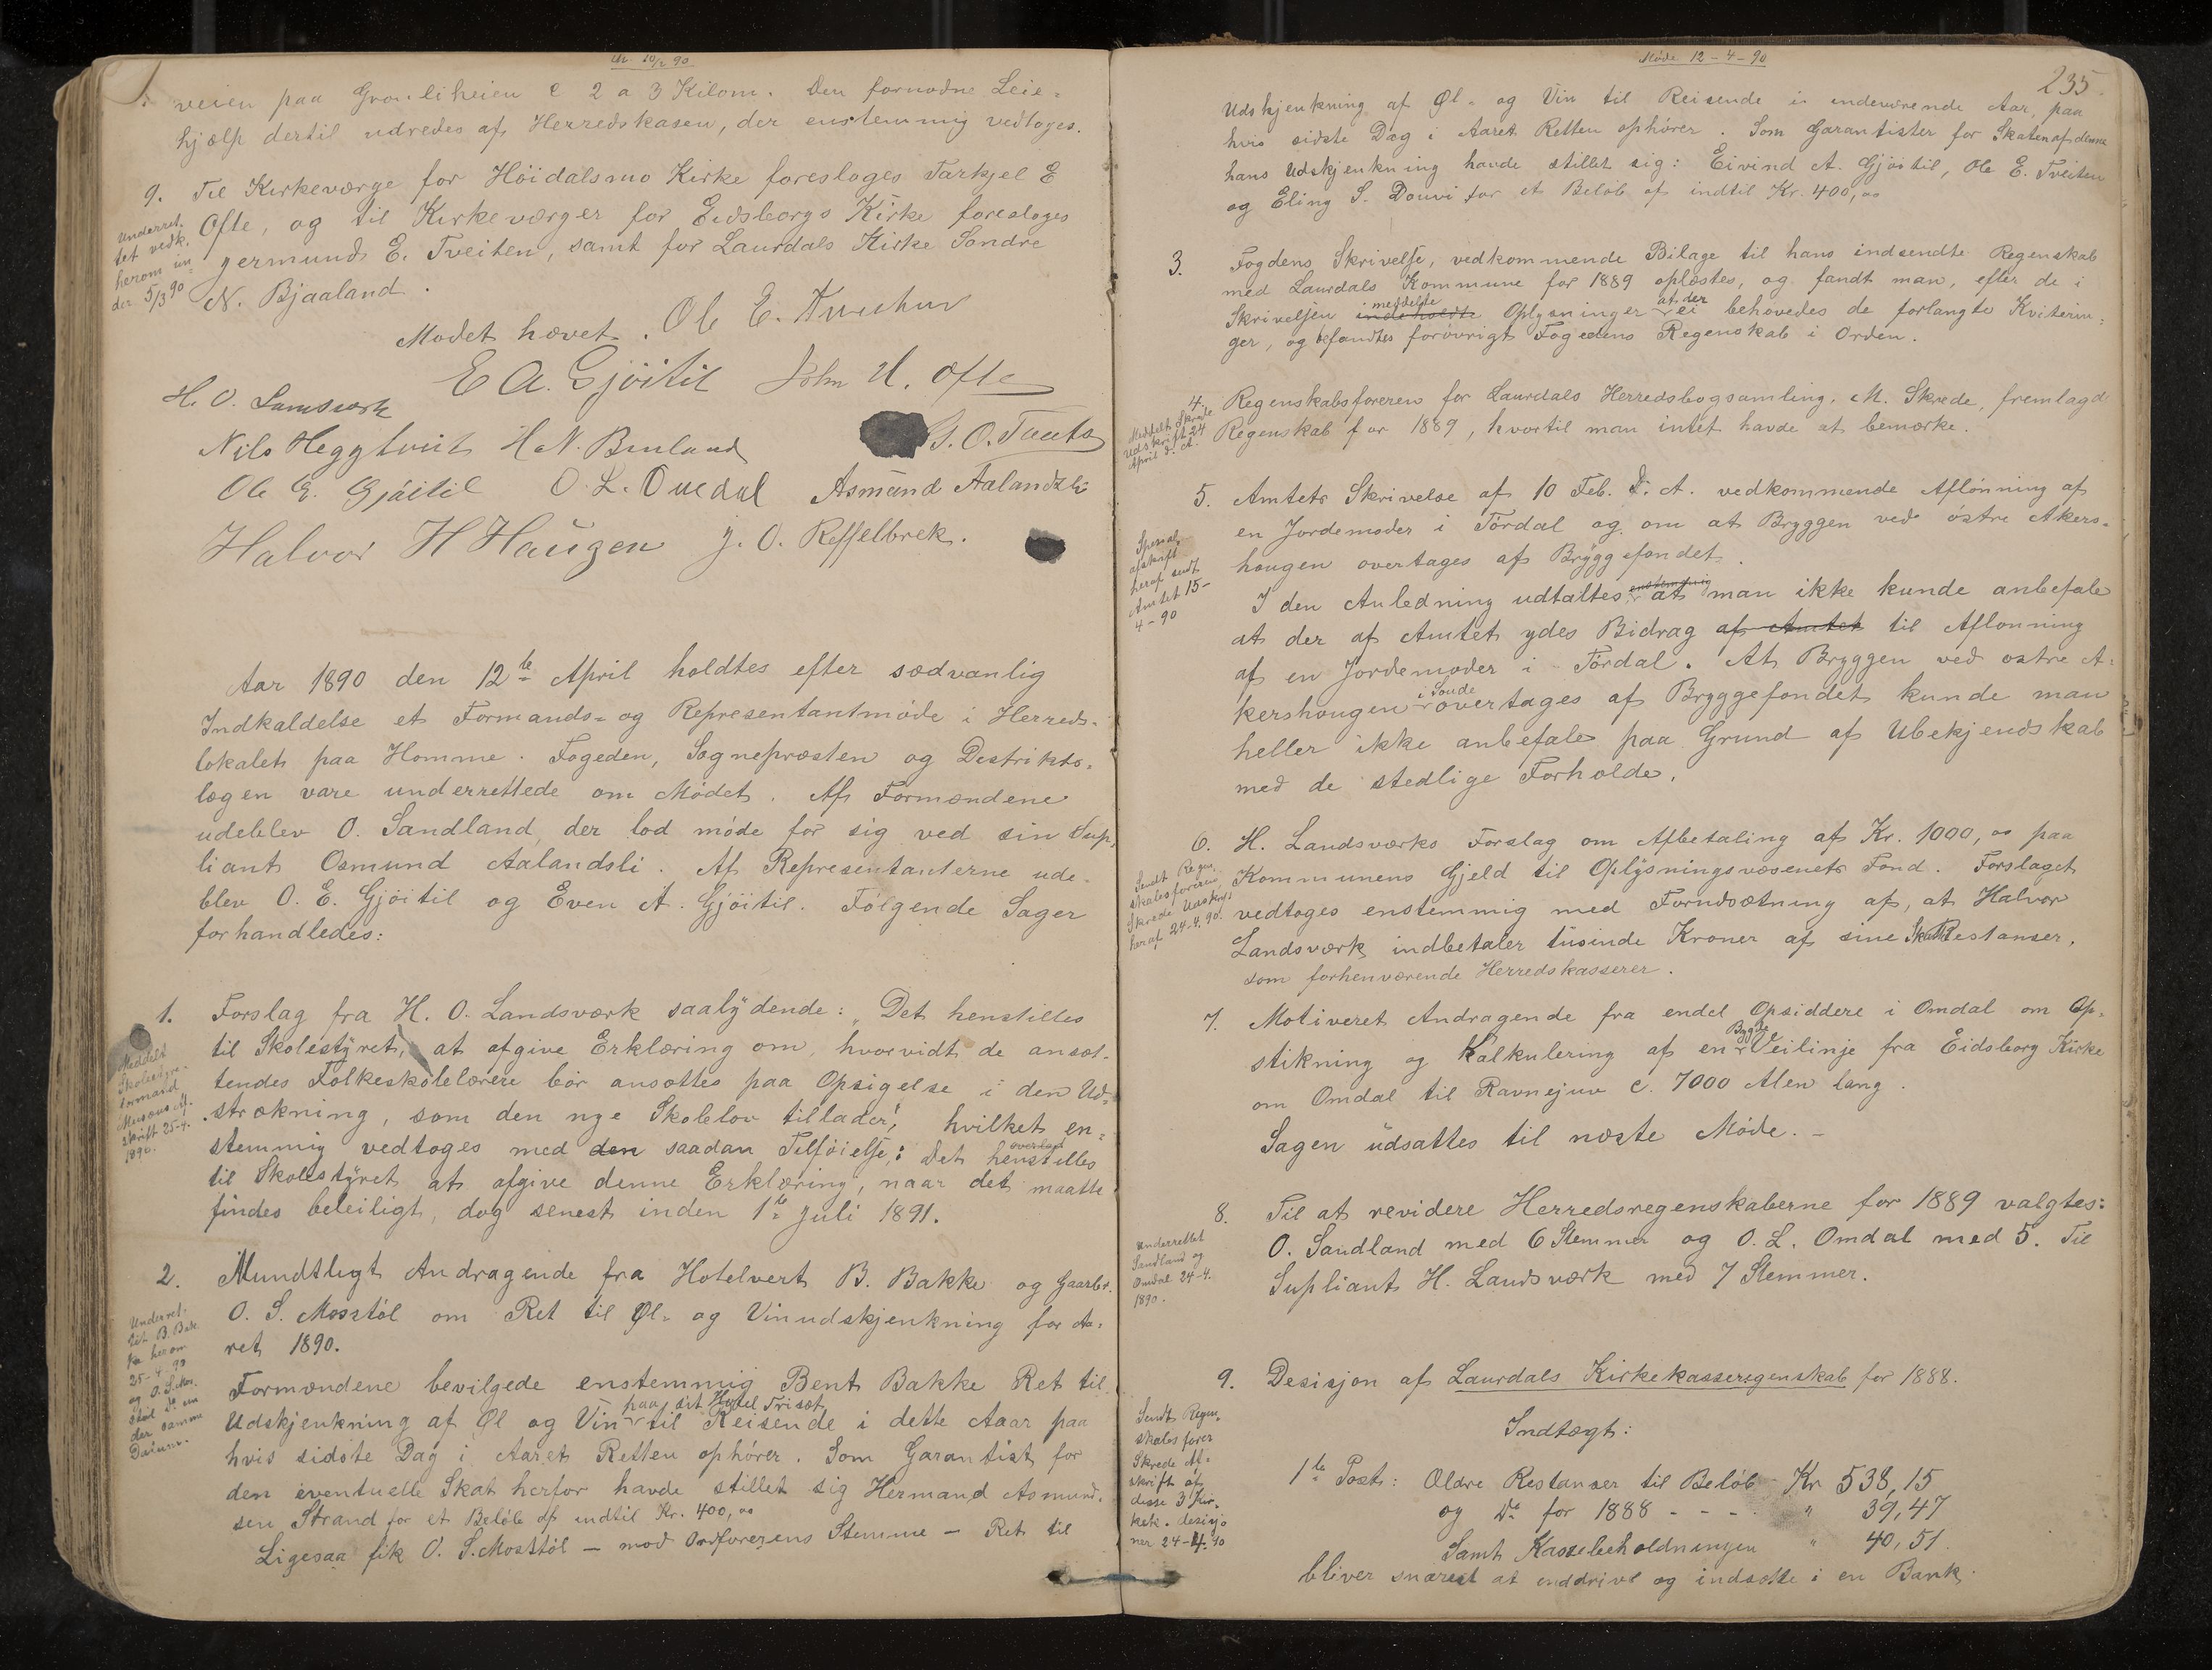 10/2 90
veien paa Gronliheien c 2 a 3 Kilom. Den fornødne Leie-
hjælp dertil udredes af Herredskasen, der enstemmig vedtoges.
9. Til Kirkeværge for Høidalsmo Kirke foresloges Tarkjel E
Ofte, og til Kirkeværger for Eidsborgs Kirke foresloges
Jermund E. Tveiten, samt for Laurdals Kirke Sondre
N. Bjaaland.
Underret.
tet vedk.
herom un
der 5/3 90
Mødet hævet. Ole E.
E A. Gjøitil John U. Ofte
H. O. Lansværk
Nils Heggtveit H. N.
Ole E. Gjøitil O. L. Omdal Asmund Aalandsli
Halvor H Haugen J. O. Reffelbrek.
Aar 1890 den 12te April holdtes efter sædvanlig
Indkaldelse et Formands- og Representantmøde i Herreds-
lokalet paa Homme. Fogeden, Sognepræsten og Destrikts-
lægen vare underrettede om Mødet. Af Formændene
udeblev O. Sandland, der lod møde for sig ved sin Sup-
liant Osmund Aalandsli. Af Representanterne ude-
blev O. E. Gjøitil og Even A. Gjøitil. Følgende Sager
forhandledes:
1. Forslag fra H. O. Landsværk saalydende: „Det henstilles
til Skolestyret, at afgive Erklæring om, hvorvidt de ansæt-
tendes Folkeskolelærere bør ansættes paa Opsigelse i den Ud-
strækning, som den nye Skolelov tillader", hvilket en-
stemmig vedtoges med den saadan Tilføielse: Det overlad henstilles
til Skolestyret at afgive denne Erklæring, naar det maatte
findes beleiligt, dog senest inden 1te Juli 1891.
Meddelt
Skolestyre-
formand
Af-
skrift 25-4-
1890.
2. Mundtligt Andragende fra Hotelvert B. Bakke og Gaarbr.
O. S. Mosstøl om Ret til Øl- og Vinudskjenkning for Aa-
ret 1890.
Formændene bevilgede enstemmig Bent Bakke Ret til
Udskjenkning af Øl og Vin paa sit Hotel Triset til Reisende i dette Aaar paa
hvis sidste Dag i Aaret Retten ophører. Som Garantist for
den eventuelle Skat herfor havde stillet sig Hermand Asmund-
sen Strand for et Beløb af indtil Kr. 400,00
Ligesaa fik O. S. Mosstøl — mod Ordførerens Stemme — Ret til
Underret-
tet B. Bak-
ke herom
25-4-90
og O. S. Mos-
støl Do un
der samme
Datum.
Møde 12-4-90
235.
Udskjenkning af Øl- og Vin til Reisende i indeværende Aar, paa
hvis sidste Dag i Aaret Retten ophører. Som Garantister for Skaten af denne
hans Udskjenkning havde stillet sig: Eivind A. Gjøitil, Ole E. Tveiten
og Eling S. Douvi for et Beløb af indtil Kr. 400,00
3. Fogdens Skrivelse, vedkommende Bilage til hans indsendte Regenskab
med Laurdals Kommune for 1889 oplæstes, og fandt man, efter de i
Skrivelsen indeholdte meddelte Oplysninger at der ei behøvedes de forlangte Kviterin-
ger, og befandtes forøvrigt Fogedens Regenskab i Orden.
4. Regenskabsføreren for Laurdals Herredsbogsamling, M. Skrede, fremlagde
Regenskab for 1889, hvortil man intet havde at bemærke.
Meddelt Skrede
Udskrift 24
April d. A.
5. Amtets Skrivelse af 10 Feb. d. A. vedkommende Aflønning af
en Jordemoder i Tørdal og om at Bryggen ved østre Akers-
hougen overtages af Bryggefondet.
I den Anledning udtaltes enstemmig at man ikke kunde anbefale
at der af Amtet ydes Bidrag af Amtet til Aflønning
af en Jordemoder i Tørdal. At Bryggen ved østre A-
kershougen i Soude overtages af Bryggefondet kunde man
heller ikke anbefale paa Grund af Ubekjendskab
med de stedlige Forholde.
Spesial-
afskrift
heraf sendt
Amtet 15-
4-90
6. H. Landsværks Forslag om Afbetaling af Kr. 1000,00 paa
Kommunens Gjeld til Oplysningsvæsenets Fond. Forslaget
vedtoges enstemmig med Forudsætning af, at Halvor
Landsværk indbetaler tusinde Kroner af sine Skatterestanser,
som forhenværende Herredskasserer.
Sendt Regen-
skabsføreren
Skrede Udskrift
heraf 24-4-90.
7. Motiveret Andragende fra endel Opsiddere i Omdal om Op-
stikning og Kalkulering af en Bygde Veilinje fra Eidsborg Kirke
om Omdal til Ravnejuv c. 7000 Alen lang.
Sagen udsattes til næste Møde. —
8. Til at revidere Herredsregenskaberne for 1889 valgtes:
O. Sandland med 6 Stemmer og O. L. Omdal med 5. Til
Supliant H. Landsværk med 7 Stemmer.
Underrettet
Sandland og
Omdal 24-4-
1890.
9. Desisjon af Laurdals Kirkekasseregenskab for 1888.
Indtægt:
1te Post: Ældre Restanser til Beløb Kr 538,15
og Do for 1888 - - - - " 39,47
Samt Kassebeholdningen " 40,51
bliver snarest at inddrive og indsætte i en Bank.
Sendt Regen-
skabsfører
Skrede Af-
skrift af
disse 3 Kir-
kek. desisjo
ner 24-4-90